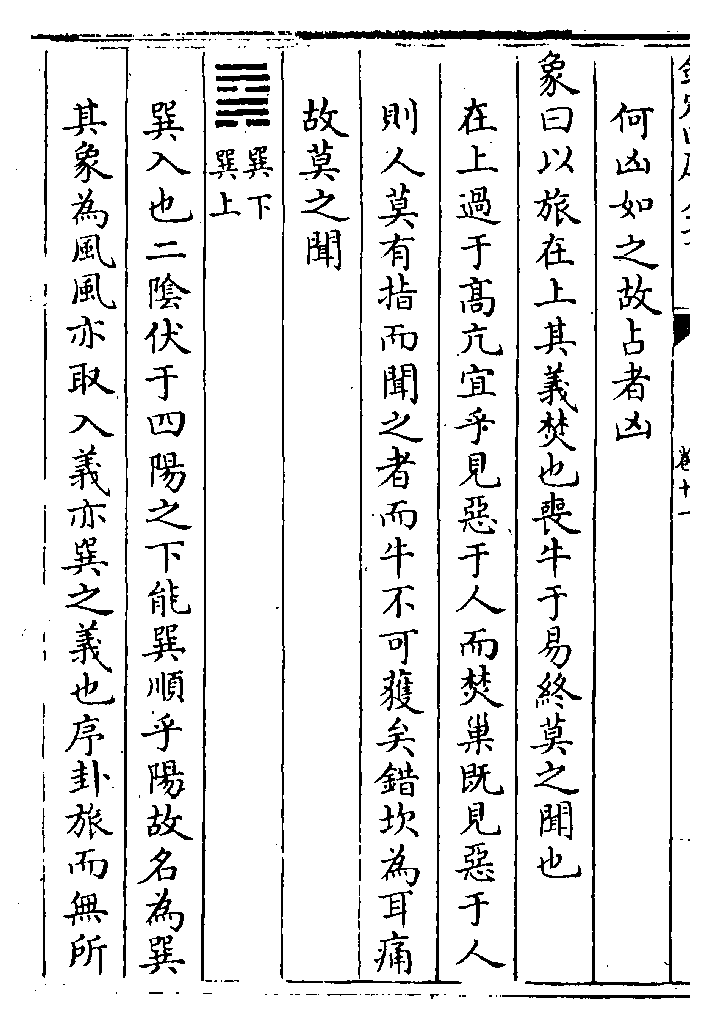 卷十一
何凶如之故占者凶
象曰以旅在上其義焚也喪牛于易終莫之聞也
在上過于髙亢宜乎見惡于人而焚巢既見惡于人
則人莫有指而聞之者而牛不可獲矣錯坎為耳痛
故莫之聞
䷸
巽下
巽上
巽入也二陰伏于四陽之下能巽順乎陽故名為巽
其象為風風亦取入義亦巽之義也序卦旅而無所